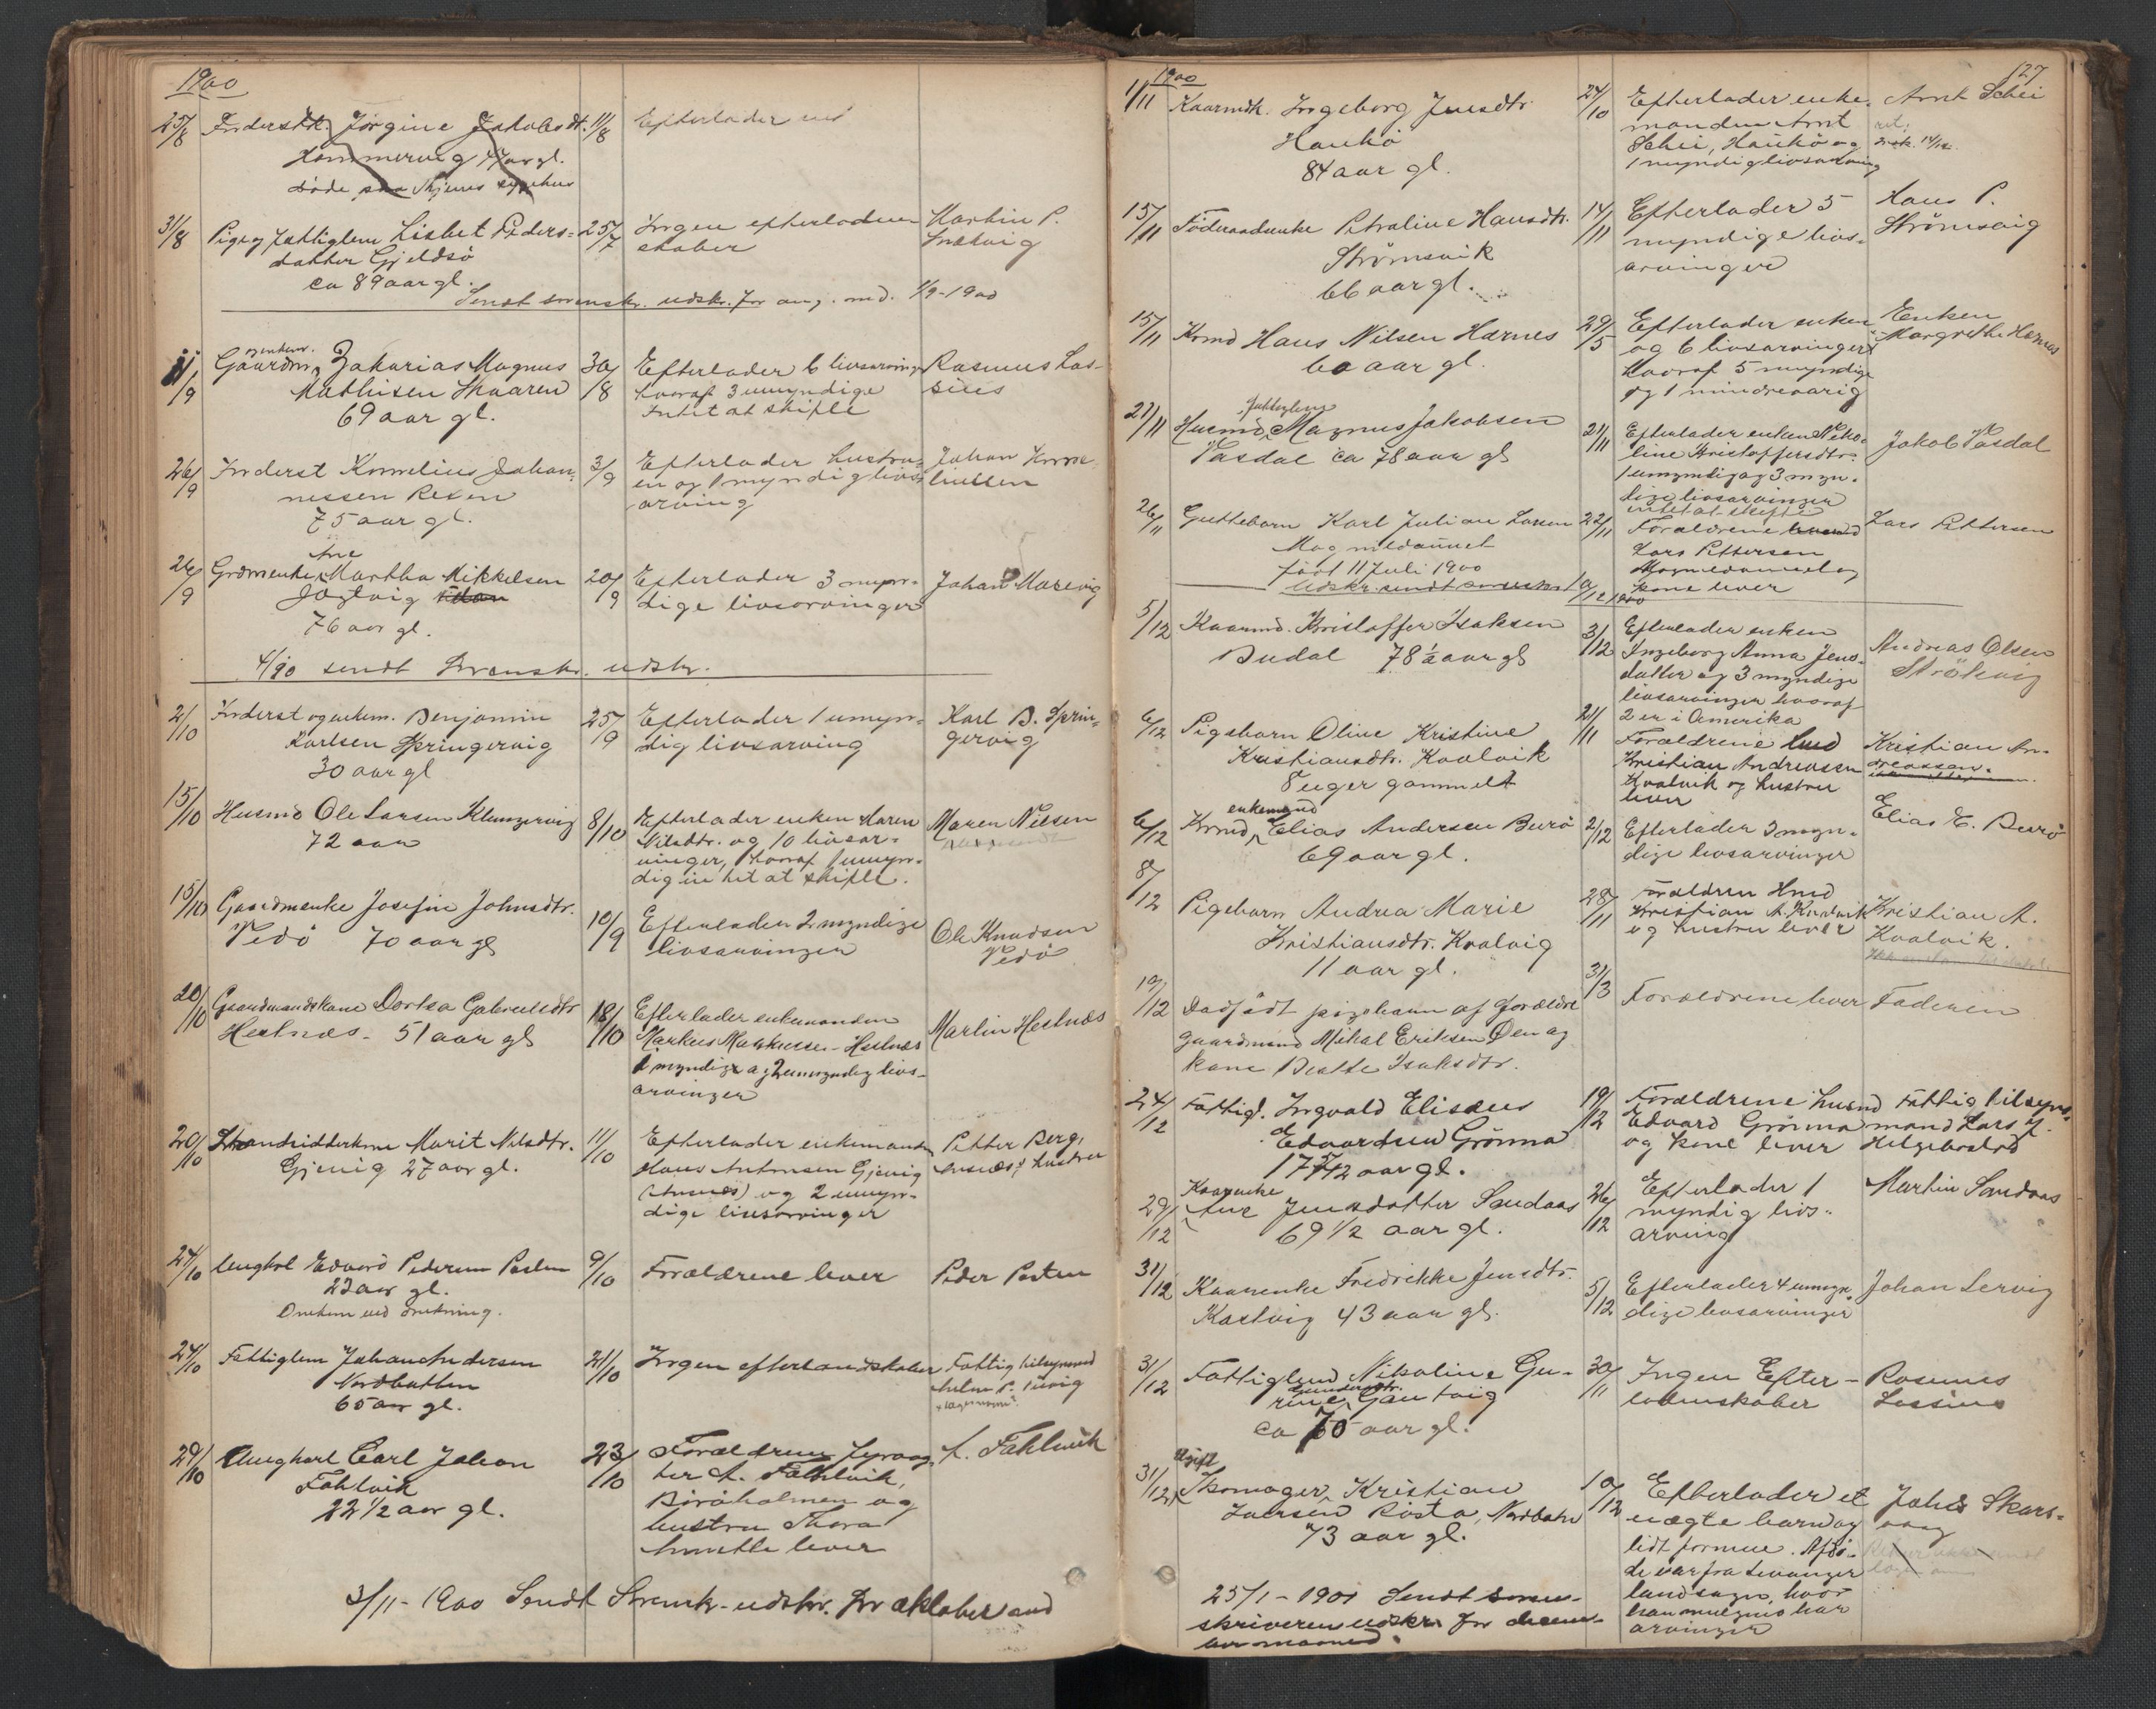 1900
25/8 Inderstk. Jørgine Jakobsdt. 11/8 Efterlader
47 aar gl.
døde paa sygehus
31/8 Pige og fattiglem Lisbet Peders- 25/7 Ingen efterladen- Martin P.
datter Gjeldsø skaber
ca 89 aar gl.
Sendt sorenskr. udskr. for aug. md. 1/9-1900
11/9 Gaardm. Zakarias Magnus 30/8 Efterlader 6 livsarvinger Rasmus Los-
Mathisen Skaaren hvoraf 3 umyndige sius
69 aar gl. Intet at skifte
26/9 Inderst Kornelius Johan- 3/9 Efterlader hustru- Johan Korne-
nessen Resen en og 1 myndig livs- liussen
75 aar gl. arving
Ane
26/9 Grdmenke Martha Mikkelsen 20/9 Efterlader 3 myn- Johan Marevig
Jøgtvig dige livsarvinger
76 aar gl.
4/10 sendt Sorenskr. udskr.
2/10 Inderst og enkem. Benjamin 25/9 Efterlader 1 umyn- Karl B. Sprin-
Karlsen Springervig dig livsarving gervig
30 aar gl
15/10 Husmd Ole Larsen Klungervig 8/10 Efterlader enken Maren Maren Nilsen
72 aar Nilsdtr. og 10 livsar-
vinger, hvoraf 1 umyn-
dig intet at skifte.
15/10 Gaardmenke Josefine Johnsdtr. 10/9 Efterlader 2 myndige Ole Knudsen
Vedø 70 aar gl livsarvinger Vedø
20/10 Gaardmandskone Dortea Gabrielsdtr 18/10 Efterlader enkemanden Martin Hestnæs
Hestnæs - 51 aar gl Markus Markussen - Hestnæs
myndige og 2 umyndig livs-
arvinger
20/10 Strandsidderkone Marit Nilsdtr. 11/10 Efterlader enkemanden Petter Berg,
Gjevig 27 aar gl. Hans Antonsen Gjevig hustru
og 2 umyn-
dige livsarvinger
24/10 Ungkarl Edvard Pedersen Posten 9/10 Forældrene lever Peder Posten
23 aar gl.
Omkom ved drukning.
24/10 Fattiglem Johan Andersen 21/10 Ingen efterladenskaber Fattigtilsynsmd
Nordbotten
65 aar gl.
29/10 Ungkarl Carl Johan 23/10 Forældrene fyrvog- A. Fahlvik
Fahlvik ter A. Fahlvik,
22 1/2 aar gl. Børøholmen og
hustru Thora
lever
3/11-1900 Sendt Sorenskr. udskr. for oktober md
1900 127
1/11 Kaarmdk. Ingeborg Jensdtr 24/10 Efterlader enke- Arnt Schei
Haukø manden Arnt
84 aar gl. Schei, Haukø og
1 myndig livsarving
15/11 Føderaadsenke Petroline Hansdtr. 14/11 Efterlader 5 Hans P.
Strømsvik myndige livs- Strømsvig
66 aar gl. arvinger
15/11 Kmd Hans Nilsen Harnes 29/5 Efterlader enken Enken
60 aar gl. og 6 livsarvinger Margrethe Harnes
hvoraf 5 myndige
og 1 mindreaarig
fattiglem
27/11 Husmd. Magnus Jakobsen 21/11 Efterlader enken Niko- Jakob Vasdal
Vasdal ca 78 aar gl line Kristoffersdtr.
1 umyndig og 3 myn-
dige livsarvinger
intet at skifte
26/11 Guttebarn Karl Julian Larsen 22/11 Forældrene Lars Pettersen
Magnildaunet Lars Pettersen
født 11 Juli 1900 Magnildaunet og
Udskr. sendt sorenskr. 1/12 1900 kone lever
5/12 Kaarmd. Kristoffer Isaksen 3/12 Efterlader enken Andreas Olsen
Dudal 78 1/2 aar gl Ingeborg Anna Jens- Strøkvig
datter og 3 myndige
livsarvinger hvoraf
2 er i Amerika
6/12 Pigebarn Oline Kristine 21/11 Forældrene hmd Kristian An-
Kristiansdtr. Kvalvik Kristian Andreassen dreassen.
8 uger gammelt Kvalvik og hustru
lever
enkemand
6/12 Kmd, Elias Andersen Burø 2/12 Efterlader 3 myn- Elias E. Burø
69 aar gl. dige livsarvinger
8/12 Pigebarn Andrea Marie 28/11 Forældren Hmd Kristian A.
Kristiansdtr. Kvalvig Kristian A. Kvalvik Kvalvik.
11 aar gl. og hustru lever
19/12 Dødfødt pigebarn af forældre 31/3 Forældrene lever Faderen
gaardmand Mikal Eriksen Øen og
kone Beatte Isaksdtr.
24/12 Fattigl. Ingvald Elisæus 19/12 Forældrene husmd Fattigtilsyns-
Edvardsen Grønna Edvard Grønna mand Lars J.
17 5/12 aar gl. og kone lever Helgebostad
Kaarenke
29/12 Ane Jensdatter Sandaas 26/12 Efterlader 1 Martin Sandaas
69 1/2 aar gl. myndig livs-
arving
31/12 Kaarenke Fredrikke Jensdtr. 5/12 Efterlader 4 umyn- Johan Servig
Kastvig 43 aar gl. dige livsarvinger
31/12 Fattiglem Nikoline Gu- 30/11 Ingen Efter- Rasmus
rine ladenskaber Lossius
ca 70 aar gl.
Ugift
31/12 Skomager Kristian 10/12 Efterlader et Johs Skars-
Iversen Røsta, Nordbotn uægte barn og vaag
73 aar gl. lidt formue. Afdø-
de var fra Levanger
landsogn, hvor
han muligens har
arvinger
25/1-1901 Sendt soren-
skriveren udskr. for decem-
ber maaned.